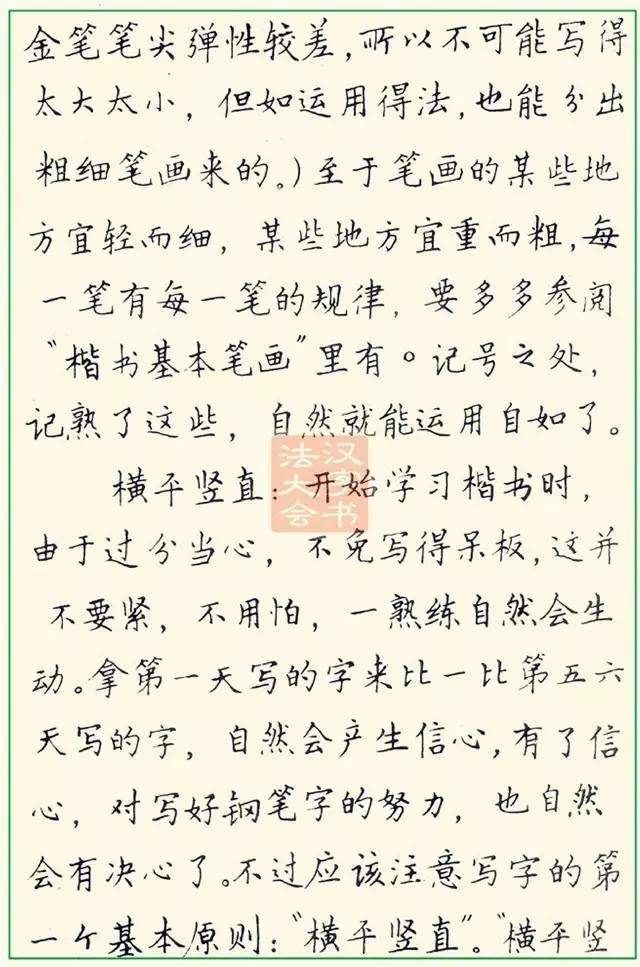 金笔笔尖弹性较差，所以不可能写得
太大太小，但如运用得法，也能分出
粗细笔画来的。）至于笔画的某些地
方宜轻而细，某些地方宜重而粗，每
一笔有每一笔的规律，要多多参阅
“楷书基本笔画”里有。记号之处，
记熟了这些，自然就能运用自如了。
横平竖直：开始学习楷书时，
由于过分当心，不免写得呆板，这并
不要紧，不用怕，一熟练自然会生
动。拿第一天写的字来比一比第五六
天写的字，自然会产生信心，有了信
心，对写好钢笔字的努力，也自然
会有决心了。不过应该注意写字的第
一个基本原则：“横平竖直”。“横平竖